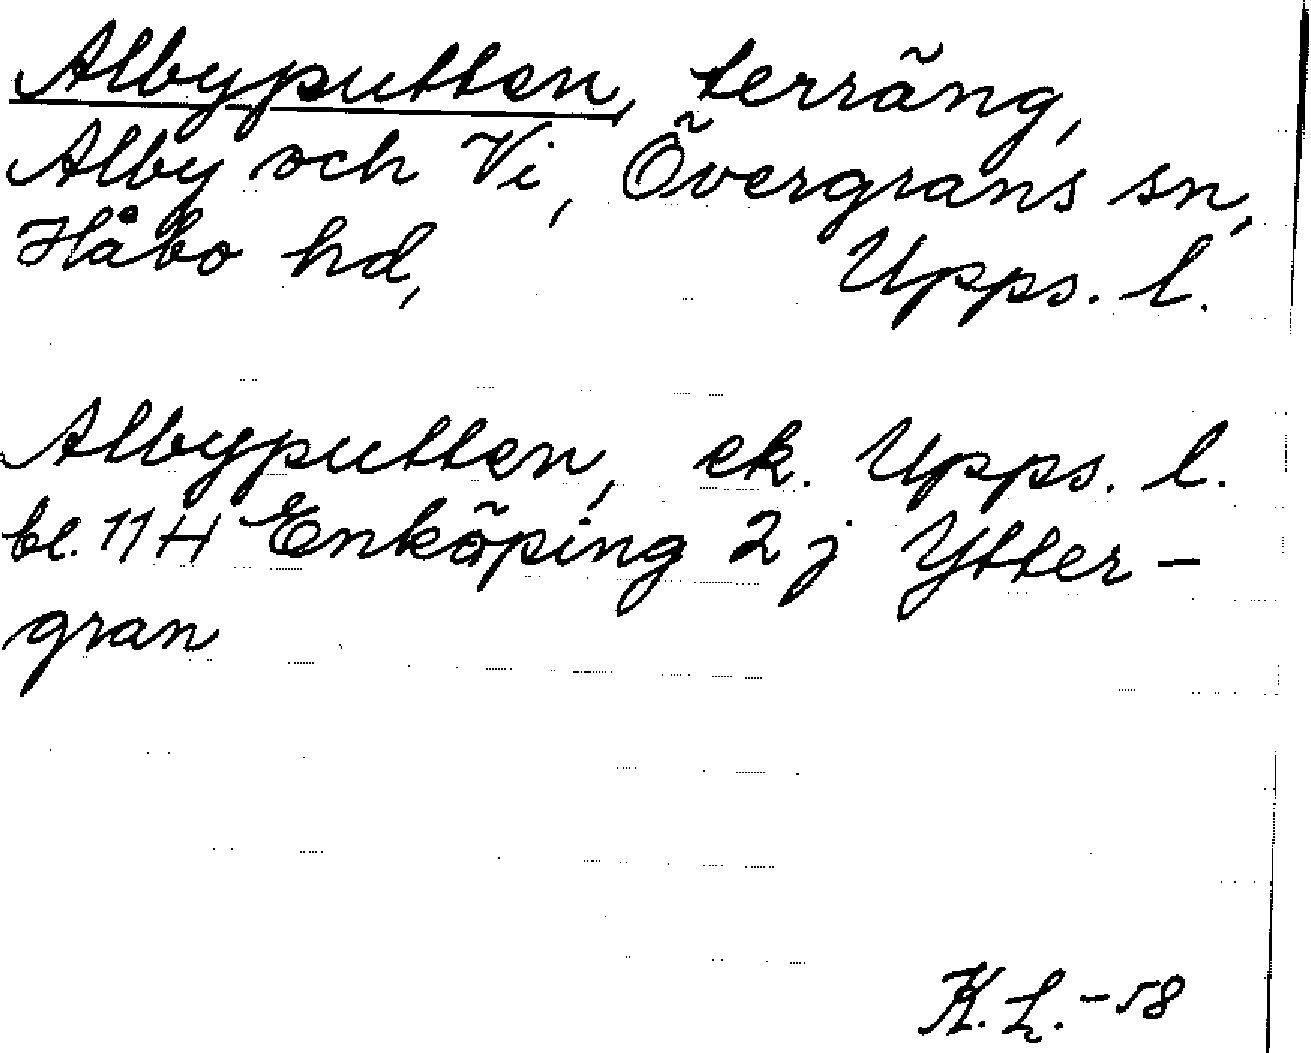 Albyputten, terräng,
Alby och Vi, Övergrans sn,
Håbo hd, Upps. l.
Albyputten, ek. Upps. l.
bl. 11 H Enköping 2 j Ytter-
gran
K. L. -58